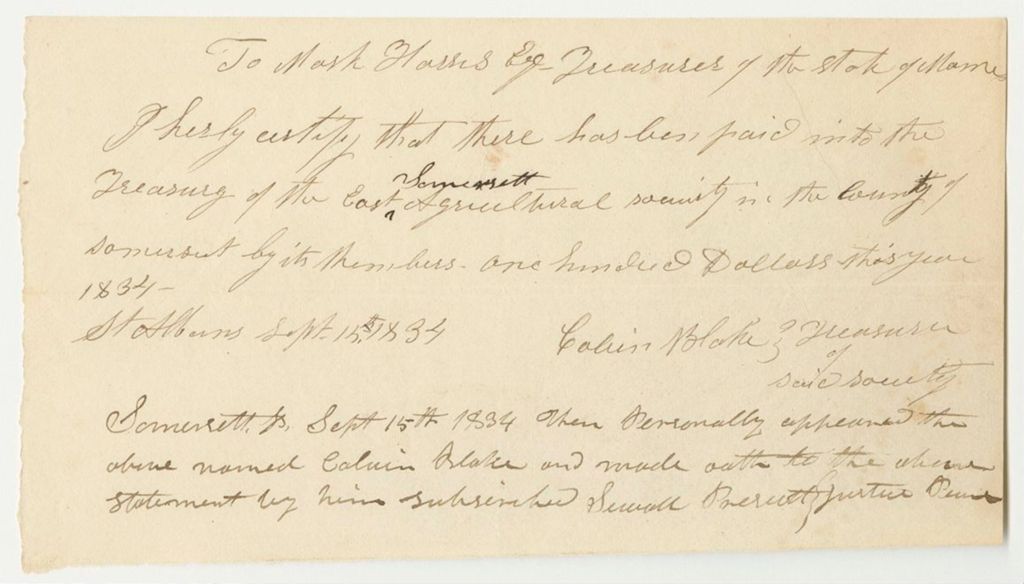 To Mark Harris Esq Treasurer of the State of Maine
I herby certify that there has ben paid into the
Treasury of the East Somersett Agricultural society in the County of
somerset by its members. one hundred Dollars this year
1834-
St Albans Sept. 15th 1834 Calvin Blake } Treasurer
of
said society
Somersett. ss. Sept 15th 1834 then Personally appeared the
above named Calvin Blake and made oath to the above
statement by him subscribed Sewall Prescott } Justice Peace